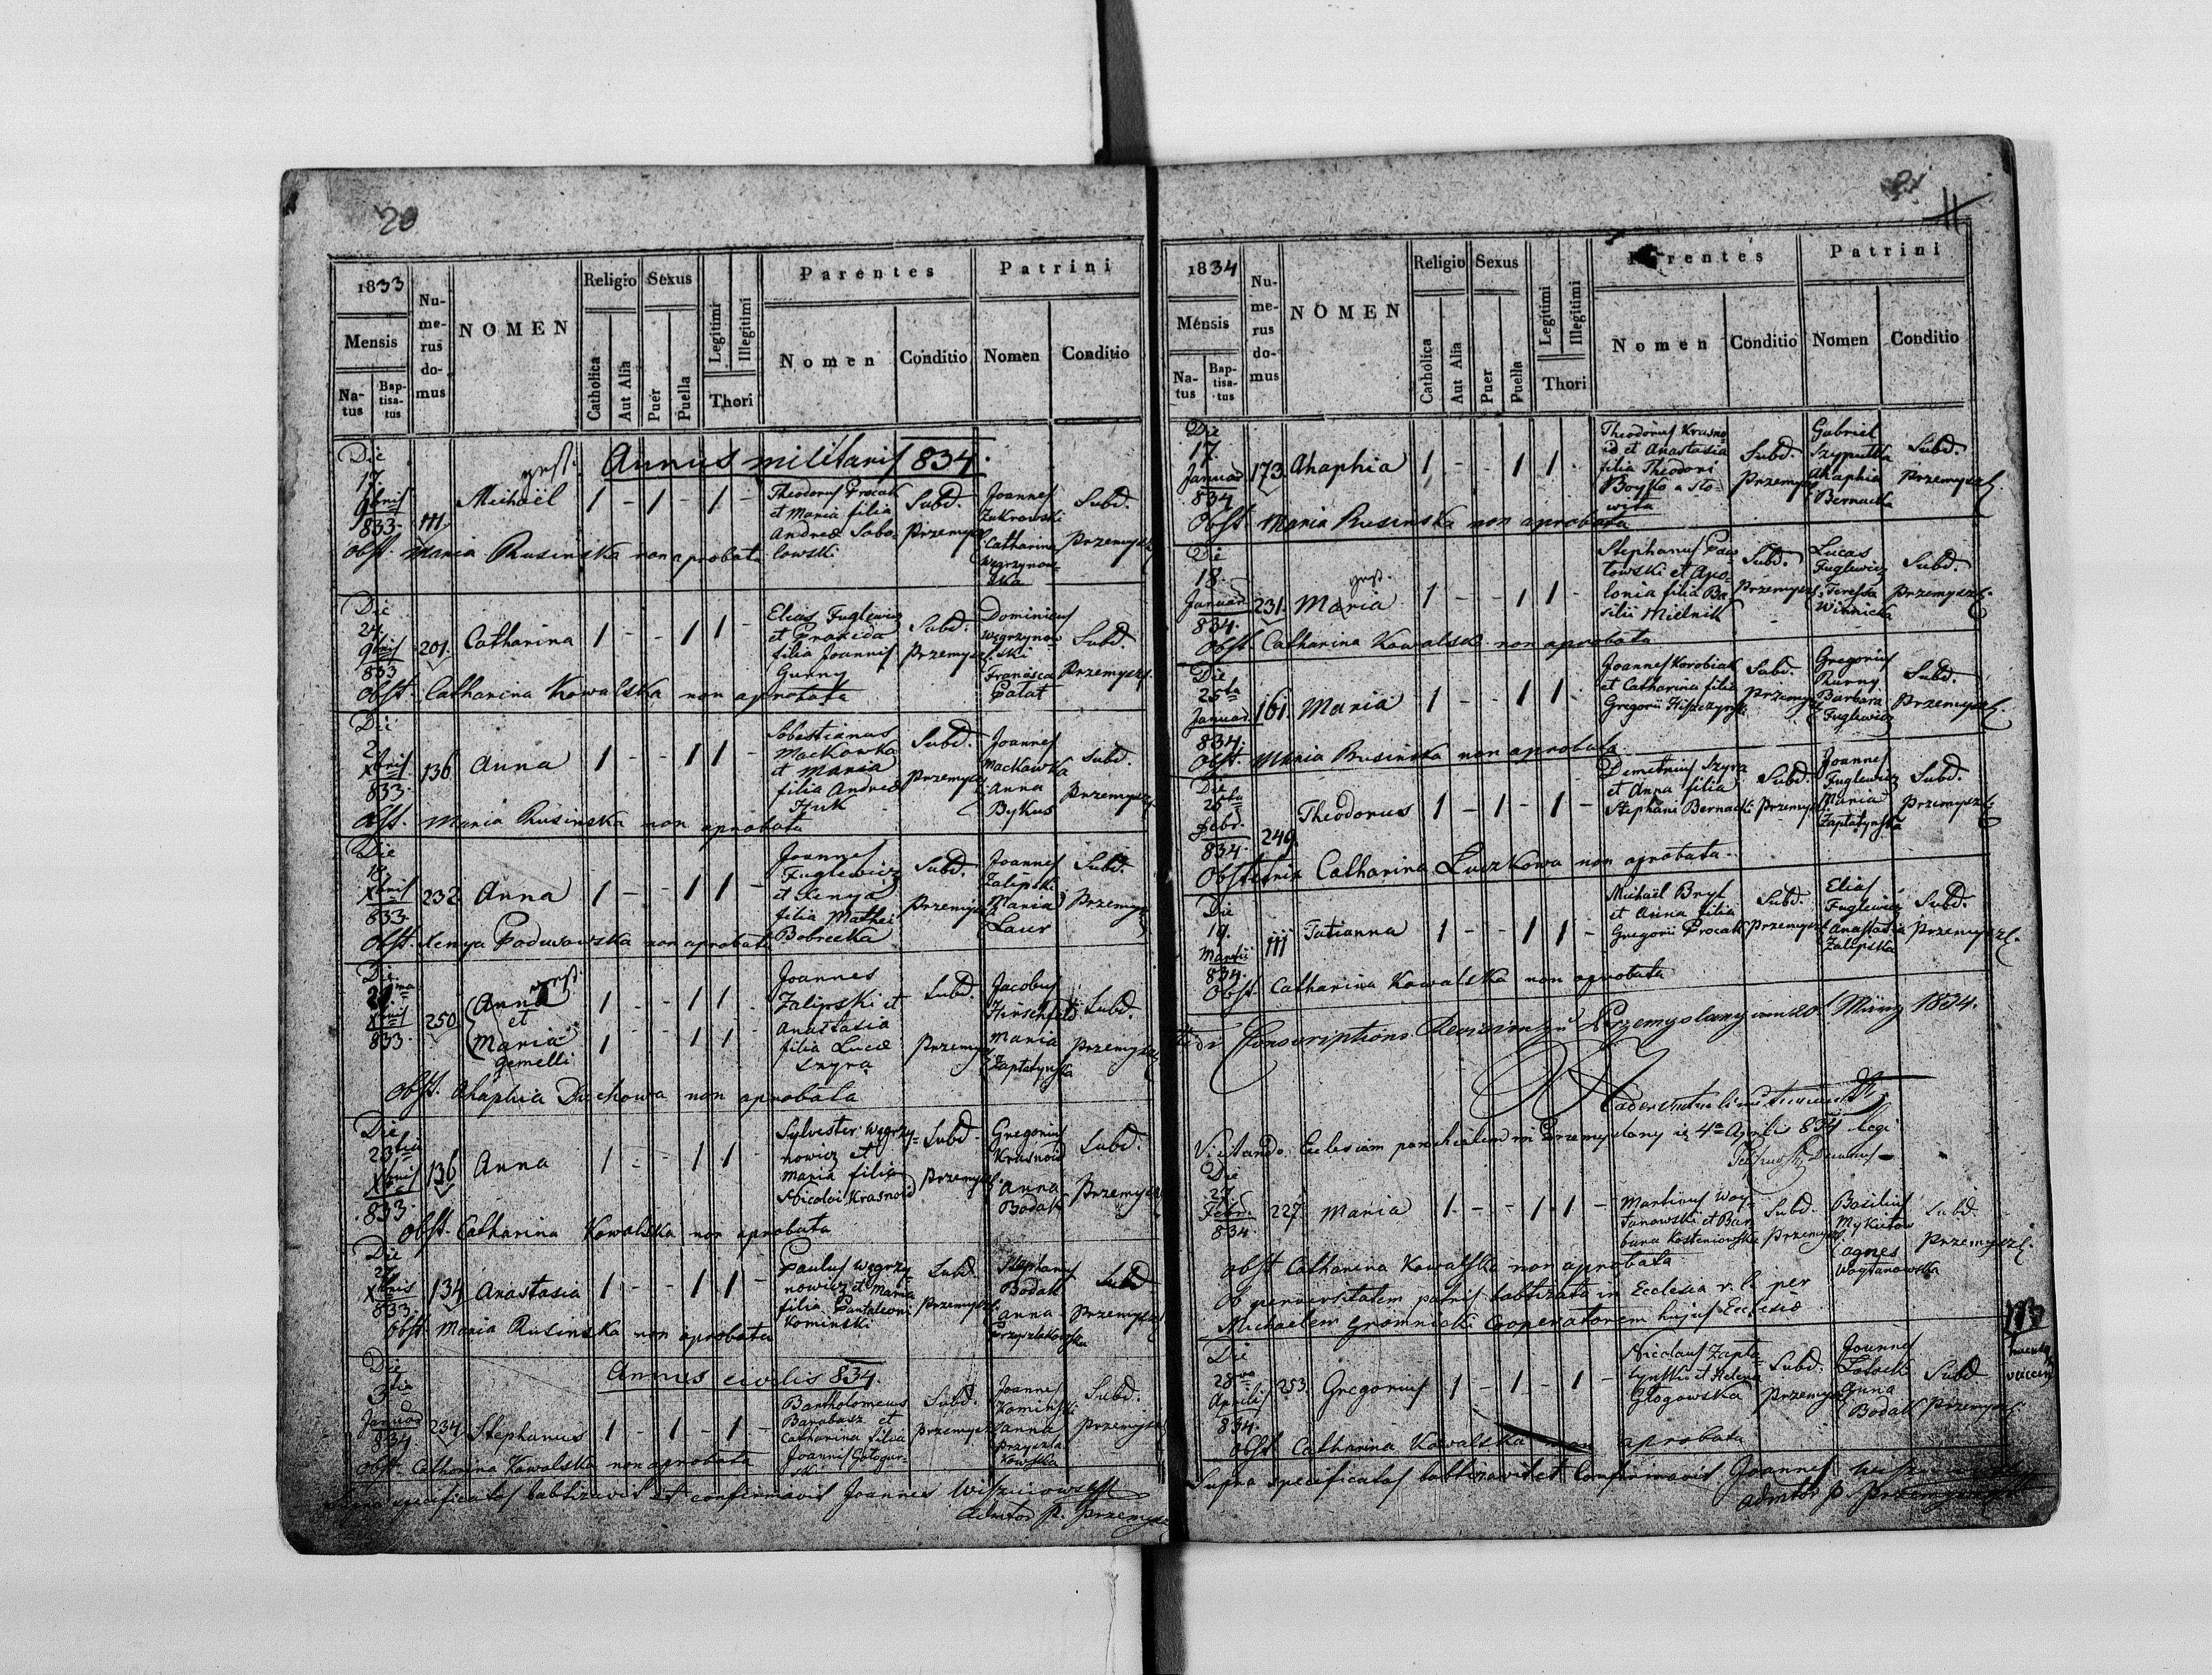 20
1833
Mensis
Na-
tus
Bap-
tisa-
tus
Nu-
me-
rus
do-
mus
NOMEN
Religio
Catholica
Aut Alia
Sexus
Puer
Puella
Legitimi
Illegitimi
Thori
Parentes
Nomen
Conditio
Patrini
Nomen
Conditio
Annus militaris 834.
Die
17
9bris
833.
111
Michaël
1 - 1 - 1 -
Theodorus Procak
et Maria filia
Andreæ Sobo-
lowski
Subd.
Przemysl.
Joannes
Zukrowski
Catharina
Węgrzynow-
ska
Subd.
Przemysl.
Obst. Maria Rusinska non aprobata
Die
24
9bris
833
201.
Catharina
1 - - 1 1 -
Elias Fuglewicz
et Praxida
filia Joannis
Gurny
Subd.
Przemysl.
Dominicus
Węgrzynow-
ski
Francisca
Patat
Subd.
Przemysl.
Obst. Catharina Kowalska non aprobata
Die
2
Xbris
833.
136
Anna
1 - - 1 1
Sobestianus
Mackowka
et Maria
filia Andreæ
Huk
Subd.
Przemysl.
Joannes
Mackowka
Anna
Bykus
Subd.
Przemysl.
Obst. Maria Rusinska non aprobata
Die
Xbris
833.
232
Anna
1 - - 1 1 -
Joannes
Fuglewicz
et Xenya
filia Mathei
Bobrecka
Subd.
Przemysl.
Joannes
Zalipski
Maria
Laur
Subd.
Przemysl.
Obst. Xenya Padusowska non aprobata
Die
Xbris
833.
250
Anna
et
Maria
gemelli
1 - - 1 1
1 - - 1 1
Joannes
Zalipski et
Anastasia
filia Lucæ
Szyra
Subd.
Przemysl.
Jacobus
Hirschfeld
Maria
Zaptatynska
Subd.
Przemysl.
Obst. Ahaphia Duchowa non aprobata
Die
23tia
Xbris
833.
136
Anna
1 - - 1 1 -
Sylvester Węgrzy-
nowicz et
Maria filia
Nicolai Krasnoid
Subd.
Przemysl.
Gregorius
Krasnoid
Anna
Bodak
Subd.
Przemysl.
Obst. Catharina Kowalska non aprobata
Die
27
Xbris
833.
134
Anastasia
1 - - 1 1 -
Paulus Węgrzy-
nowicz et Maria
filia Pantaleoni
Kominski
Subd.
Przemysl.
Stephanus
Bodak
Anna
Przyszlakowska
Subd.
Przemysl.
Obst. Maria Rusinska non aprobata
Annus civilis 834.
Die
3tia
Januar
834.
234
Stephanus
1 - 1 - 1 -
Bartholomeus
Barabasz et
Catharina filia
Joannis Gologur-
ski
Subd.
Przemysl.
Joannes
Kominski
Anna
Przyszla-
kowska
Subd.
Przemysl.
Obst. Catharina Kowalska non aprobata
Supra specificatos babtizavit et confirmavit Joannes
Admtor P. Przemysl
1834
Mensis
Na-
tus
Bap-
tisa-
tus
Nu-
me-
rus
do-
mus
NOMEN
Religio
Catholica
Aut Alia
Sexus
Puer
Puella
Legitimi
Illegitimi
Thori
Parentes
Nomen
Conditio
Patrini
Nomen
Conditio
Die
17
Januar
834
173
Ahaphia
1 - - 1 1 -
Theodorus Krasno-
id et Anastasia
filia Theodori
Boyko
Subd.
Przemysl.
Gabriel
Szyputka
Ahaphia
Bernacka
Subd.
Przemysl.
Obst. Maria Rusinska non aprobata
Die
18.
Januar
834.
231.
Maria
1 - - 1 1 -
Stephanus Paw-
lowski et Apo-
lonia filia Ba-
silii Mielnik
Subd.
Przemysl.
Lucas
Fuglewicz
Teressa
Winnicka
Subd.
Przemysl.
Obst. Catharina Kowalska non aprobata
Die
25ta
Januar
834.
161.
Maria
1 - - 1 1 -
Joannes Korobiak
et Catharina filia
Gregorii
Subd.
Przemysl.
Gregorius
Kurny
Barbara
Fuglewicz
Subd.
Przemysl.
Obst. Maria Rusinska non aprobata
Die
25ta
Febr.
834.
249.
Theodorus
1 - 1 - 1 -
Demetrius Szyra
et Anna filia
Stephani Bernacki
Subd.
Przemysl.
Joannes
Fuglewicz
Maria
Zaptatynska
Subd.
Przemysl.
Obstetrix Catharina Luszkowa non aprobata
Die
19.
Martii
834.
111
Tatianna
1 - - 1 1 -
Michaël Bryk
et Anna filia
Gregorii Procak
Subd.
Przemysl.
Elias
Fuglewicz
Anastasia
Zalipska
Subd.
Przemysl.
Obst. Catharina Kowalska non aprobata
Conscriptions Revision zu Przemyslany am 20. März 1834.
Visitando Eclesiam parochialem in Przemyslany 4ta Aprilis 834 legi
Die
27
Febr.
834.
227.
Maria
1 - - 1 1 -
Martinus Woy-
tanowski et Bar-
bara Kosteniowska
Subd.
Przemysl.
Basilius
Mykitow
Agnes
Woytanowska
Subd.
Przemysl.
Obst Catharina Kowalska non aprobata
Ob perversitatem patris babtizata in Ecclesia r. l. per
Michaelem Gromnicki Cooperatorem hujus Ecclesiæ
Die
28va
Aprilis
834.
253.
Gregorius
1 - 1 - 1 -
Nicolaus Zapta-
tynski et Helena
Glogowska
Subd.
Przemysl.
Joannes
Anna
Bodak
Subd.
Przemysl.
Obst Catharina Kowalska non aprobata
Supra specificatos babtizavit et Confirmavit Joannes
Admtor P. Przemysl